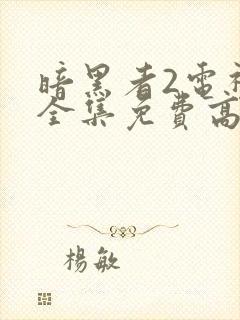 暗黑者2電
全集免費高
楊敏